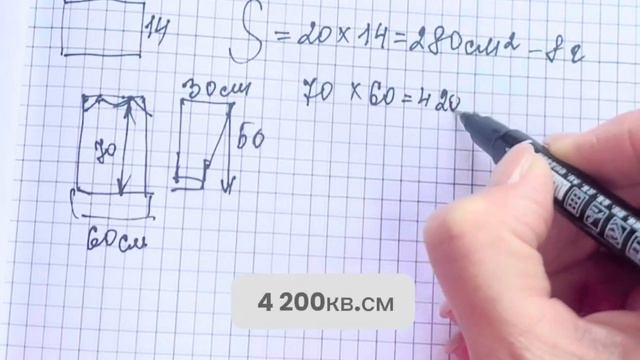 14 S = 20 × 14 = 280 см² – 8 г
30 см 70 × 60 = 420
70 50
60 см
4 200кв.см